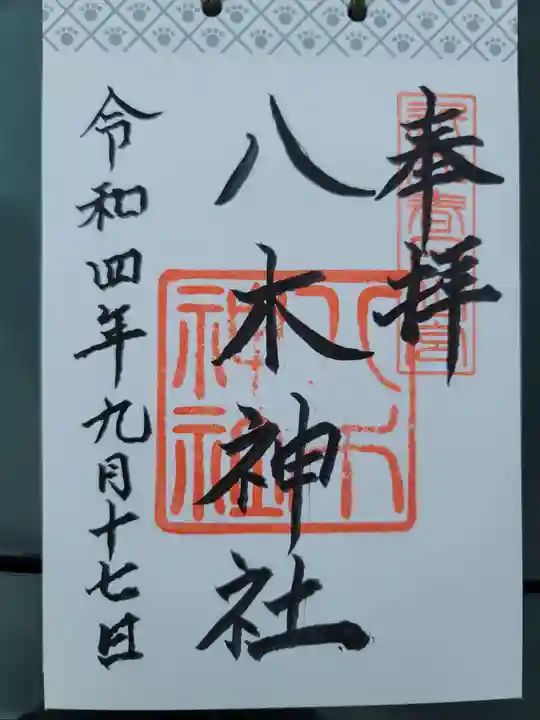 奉拝
八木神社
八木
神社
令和四年九月十七日